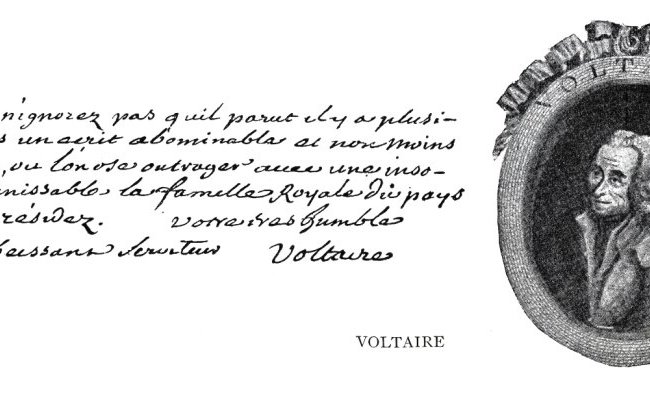 nignorez pas quil parut il y a plusi-
s un ecrit abominable et non moins
, ou l'on ose outrager avec une inso-
nissable la famille Royale du pays
résidez. votre tres humble
beissant serviteur Voltaire
VOLTAIRE
VOLT